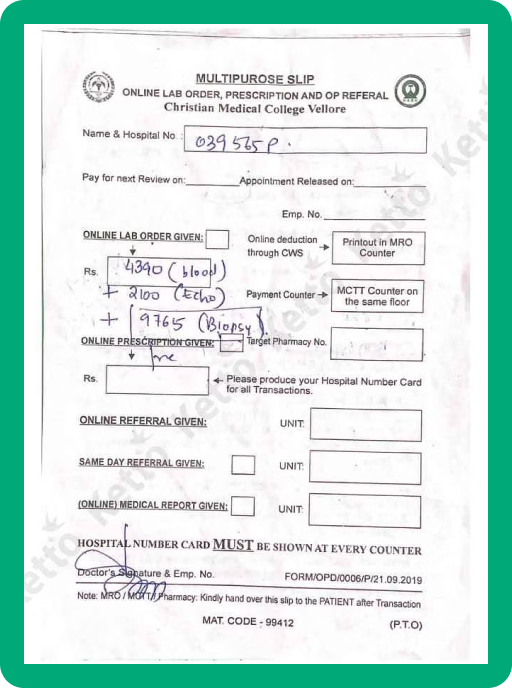 MULTIPUROSE SLIP
ONLINE LAB ORDER, PRESCRIPTION AND OP REFERAL
Christian Medical College Vellore
Name & Hospital No. : 039565P.
Pay for next Review on: Appointment Released on:
Emp. No.
ONLINE LAB ORDER GIVEN: Online deduction through CWS → Printout in MRO Counter
Rs. 4390 (blood)
+ 2100 (Echo) Payment Counter → MCTT Counter on the same floor
+ 9765 (Biopsy).
ONLINE PRESCRIPTION GIVEN: Target Pharmacy No.
Rs. ← Please produce your Hospital Number Card for all Transactions.
ONLINE REFERRAL GIVEN: UNIT:
SAME DAY REFERRAL GIVEN: UNIT:
(ONLINE) MEDICAL REPORT GIVEN: UNIT:
HOSPITAL NUMBER CARD MUST BE SHOWN AT EVERY COUNTER
Doctor's Signature & Emp. No. FORM/OPD/0006/P/21.09.2019
Note: MRO / MCTT / Pharmacy: Kindly hand over this slip to the PATIENT after Transaction
MAT. CODE - 99412 (P.T.O)
Ketto